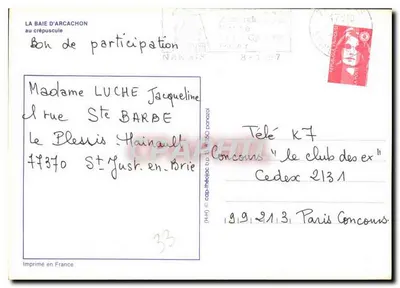 LA BAIE D'ARCACHON
au crépuscule
Bon de participation
Madame LUCHE Jacqueline
1 rue Ste BARBE
Le Plessis-Hainault
77370 St Just-en-Brie
Télé K7
Concours "le club des ex"
Cedex 2131
99.213 Paris Concours
33
Imprimé en France